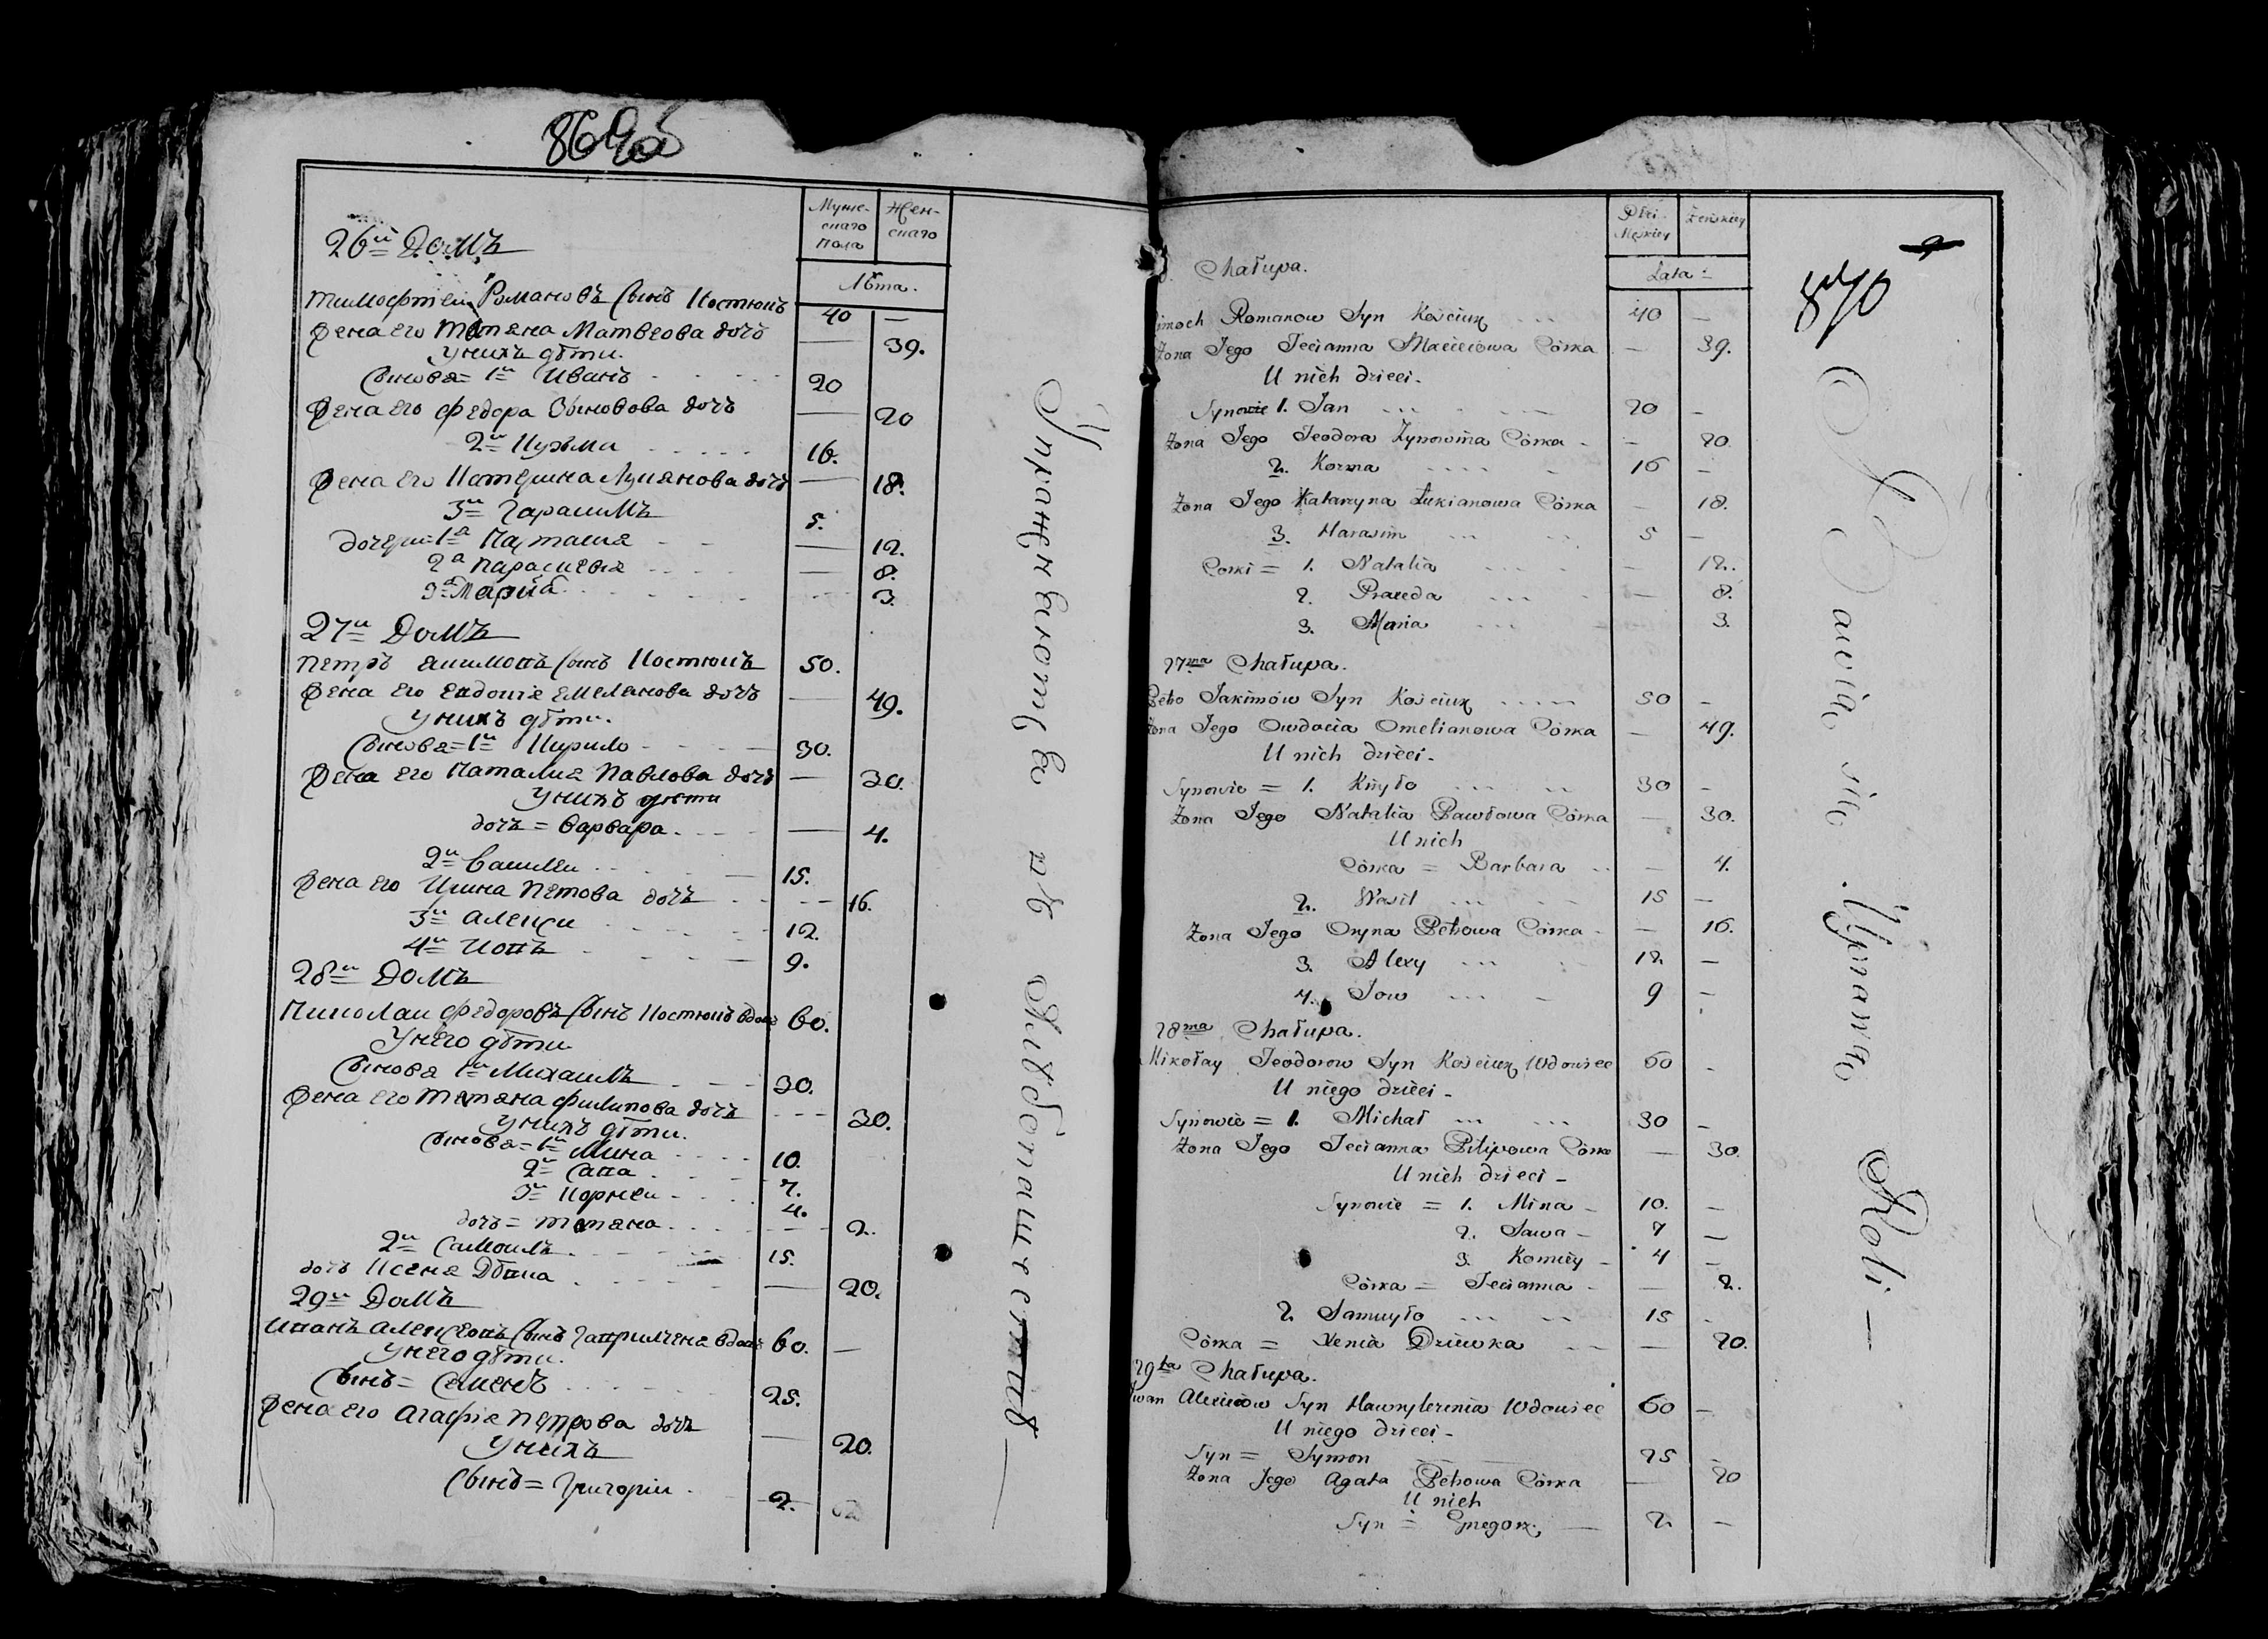 869об
Мужескаго пола
Женскаго
Лѣта.
26й Домъ
Тимофтеи Романовъ Сынъ Костюкъ 40 —
Жена его Татяна Матвеова дочъ — 39.
У нихъ дѣти.
Сыновя = 1й Иванъ 20
Жена его Федора Зыновова дочъ — 20
2й Кузьма 16.
Жена его Катерина Лукянова дочъ — 18.
3й Гарасимъ 5.
Дочери = 1а Наталия — 12.
2а Параскевия — 8.
3а Мария 3.
27й Домъ
Петръ Якимовъ Сынъ Костюкъ 50.
Жена его Евдокія Емелянова дочъ — 49.
У нихъ дѣти.
Сыновя = 1й Кирило 30.
Жена его Наталия Павлова дочъ — 30.
У нихъ дѣти
дочъ = Варвара — 4.
2й Василеи 15.
Жена его Ирина Петова дочъ 16.
3й Алекси 12.
4й Иовъ 9.
28й Домъ
Николаи Федоровъ Сынъ Костюкъ вдовец 60.
У него дѣти
Сыновя 1й Михаилъ 30.
Жена его Татяна Филипова дочъ 30.
У нихъ дѣти.
Сыновя = 1й Мина 10.
2й Сава 7.
3й Корнеи 4.
дочъ = Татяна 2.
2й Самоилъ 15.
дочъ Ксеня Дѣвка — 20.
29й Домъ
Иванъ Алексеовъ Сынъ Гаврилченя вдовец 60. —
У него дѣти.
Сынъ = Семенъ 25.
Жена его Агафія Петрова дочъ — 20.
У нихъ
Сынъ = Григории 2.
Упражняются въ Хлѣбопашествѣ —
870
Płci Męskiey
Żeńskiey
Lata =
Chałupa.
Romanow Syn Kościuk 40 —
Żona Jego Tecianna Macieiowa Córka — 39.
U nich dzieci.
Synowie 1. Jan 20 —
Żona Jego Teodora Zynowina Córka — 20.
2. Kozma 16 —
Żona Jego Katarzyna Łukianowa Córka — 18.
3. Harasim 5 —
Corki = 1. Natalia — 12.
2. Praxeda — 8.
3. Maria 3.
27ma Chałupa.
Petro Jakimów Syn Kościuk 50 —
Żona Jego Owdocia Omelianowa Córka — 49.
U nich dzieci.
Synowie = 1. Kiryło 30 —
Żona Jego Natalia Pawłowa Córka — 30.
U nich
Córka = Barbara — 4.
2. Wasil 15 —
Żona Jego Oryna Petrowa Córka — 16.
3. Alexy 12 —
4. Jow 9 —
28ma Chałupa.
Mikołay Teodorow Syn Kościuk Wdowiec 60 -
U niego dzieci -
Synowie = 1. Michał 30 —
Żona Jego Tecianna Pilipowa Córka — 30.
U nich dzieci -
Synowie = 1. Mina 10. —
2. Sawa 7 —
3. Korniey 4 —
Córka = Tecianna — 2.
2. Samuyło 15 -
Córka = Xenia Dziewka — 20.
29ta Chałupa.
Iwan Alexieiow Syn Hawrylczenia Wdowiec 60 —
U niego dzieci -
Syn = Symon 25 -
Żona Jego Agata Petrowa Córka — 20
U nich
Syn = Gregorz — 2 —
Bawią się Uprawą Roli —